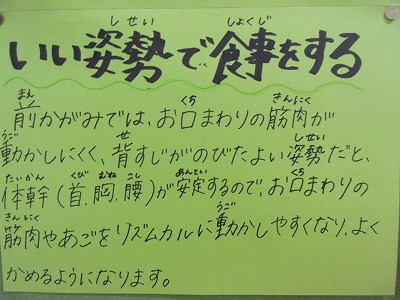 しせい しょくじ
いい姿勢で食事をする
まえ くち きんにく
前かがみでは、お口まわりの筋肉が
うご せ しせい
動かしにくく、背すじがのびたよい姿勢だと、
たいかん くび むね こし あんてい くち
体幹(首.胸.腰)が安定するので、お口まわりの
きんにく うご
筋肉やあごをリズムカルに動かしやすくなり、よく
かめるようになります。